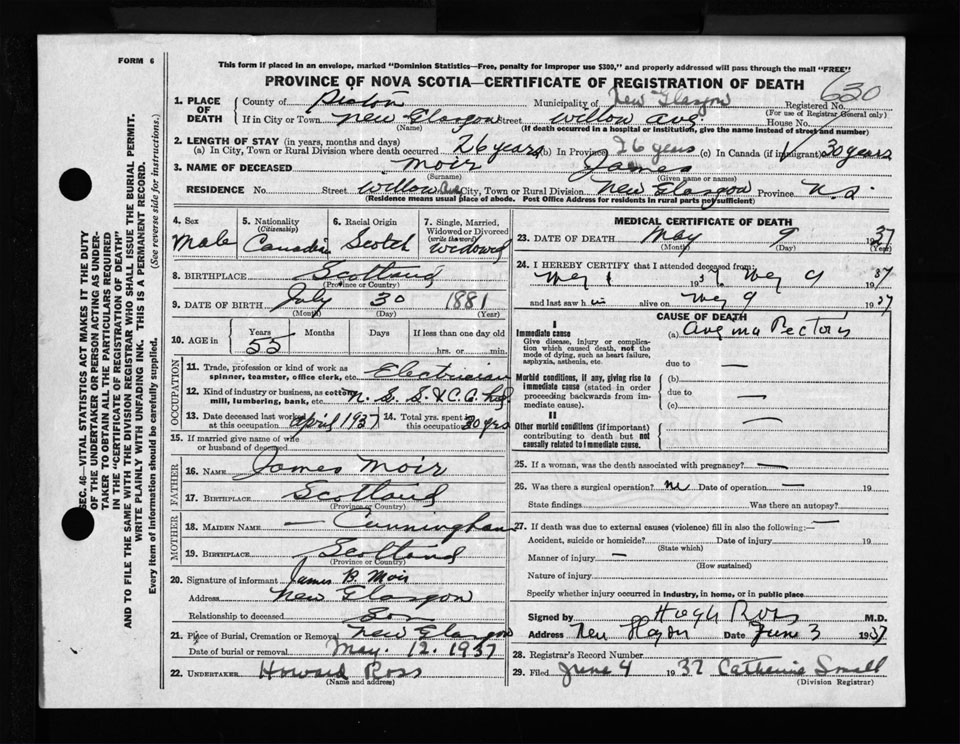 FORM 6
This form if placed in an envelope, marked "Dominion Statistics—Free, penalty for improper use $300," and properly addressed will pass through the mail "FREE"
PROVINCE OF NOVA SCOTIA—CERTIFICATE OF REGISTRATION OF DEATH
630
1. PLACE OF DEATH
County of Pictou Municipality of New Glasgow Registered No.
(For use of Registrar General only)
If in City or Town New Glasgow Street Willow Ave. House No.
(Name) (If death occurred in a hospital or institution, give the name instead of street and number)
2. LENGTH OF STAY (in years, months and days)
(a) In City, Town or Rural Division where death occurred 26 years (b) In Province 26 years (c) In Canada (if immigrant) 30 years
3. NAME OF DECEASED Moir James
(Surname) (Given name or names)
RESIDENCE No. Street Willow Ave City, Town or Rural Division New Glasgow Province N.S.
(Residence means usual place of abode. Post Office Address for residents in rural parts not sufficient)
4. Sex 5. Nationality (Citizenship) 6. Racial Origin 7. Single, Married, Widowed or Divorced (write the word)
Male Canadian Scotch Widowed
8. BIRTHPLACE Scotland
(Province or Country)
9. DATE OF BIRTH July 30 1881
(Month) (Day) (Year)
10. AGE in Years Months Days If less than one day old
55 hrs. or min.
OCCUPATION
11. Trade, profession or kind of work as spinner, teamster, office clerk, etc. Electrician
12. Kind of industry or business, as cotton mill, lumbering, bank, etc. N. S. S. & C. Co.
13. Date deceased last worked at this occupation April 1937 14. Total yrs. spent in this occupation 30 yrs
15. If married give name of wife or husband of deceased
FATHER
16. NAME James Moir
17. BIRTHPLACE Scotland
(Province or Country)
MOTHER
18. MAIDEN NAME — Cunningham
19. BIRTHPLACE Scotland
(Province or Country)
20. Signature of informant James B. Moir
Address New Glasgow
Relationship to deceased Son
21. Place of Burial, Cremation or Removal New Glasgow
Date of burial or removal May. 12. 1937
22. UNDERTAKER Howard Ross
(Name and address)
MEDICAL CERTIFICATE OF DEATH
23. DATE OF DEATH May 9 1937
(Month) (Day) (Year)
24. I HEREBY CERTIFY that I attended deceased from:
May 1 1937 to May 9 1937
and last saw him alive on May 9 1937
CAUSE OF DEATH
I
Immediate cause (a) Angina Pectoris
Give disease, injury or complication which caused death, not the mode of dying, such as heart failure, asphyxia, asthenia, etc.
due to —
Morbid conditions, if any, giving rise to immediate cause (stated in order proceeding backwards from immediate cause).
(b) —
due to
(c) —
II
Other morbid conditions (if important) contributing to death but not causally related to immediate cause.
25. If a woman, was the death associated with pregnancy? —
26. Was there a surgical operation? no Date of operation — 19
State findings Was there an autopsy?
27. If death was due to external causes (violence) fill in also the following:—
Accident, suicide or homicide? Date of injury 19
(State which)
Manner of injury —
(How sustained)
Nature of injury
Specify whether injury occurred in Industry, in home, or in public place
Signed by Hugh Ross M.D.
Address New Glasgow Date June 3 1937
28. Registrar's Record Number
29. Filed June 4 1937 Catherine Small
(Division Registrar)
SEC. 46—VITAL STATISTICS ACT MAKES IT THE DUTY
OF THE UNDERTAKER OR PERSON ACTING AS UNDER-
TAKER TO OBTAIN ALL THE PARTICULARS REQUIRED
IN THE "CERTIFICATE OF REGISTRATION OF DEATH"
AND TO FILE THE SAME WITH THE DIVISION REGISTRAR WHO SHALL ISSUE THE BURIAL PERMIT.
WRITE PLAINLY WITH UNFADING INK. THIS IS A PERMANENT RECORD.
Every item of information should be carefully supplied. (See reverse side for instructions.)